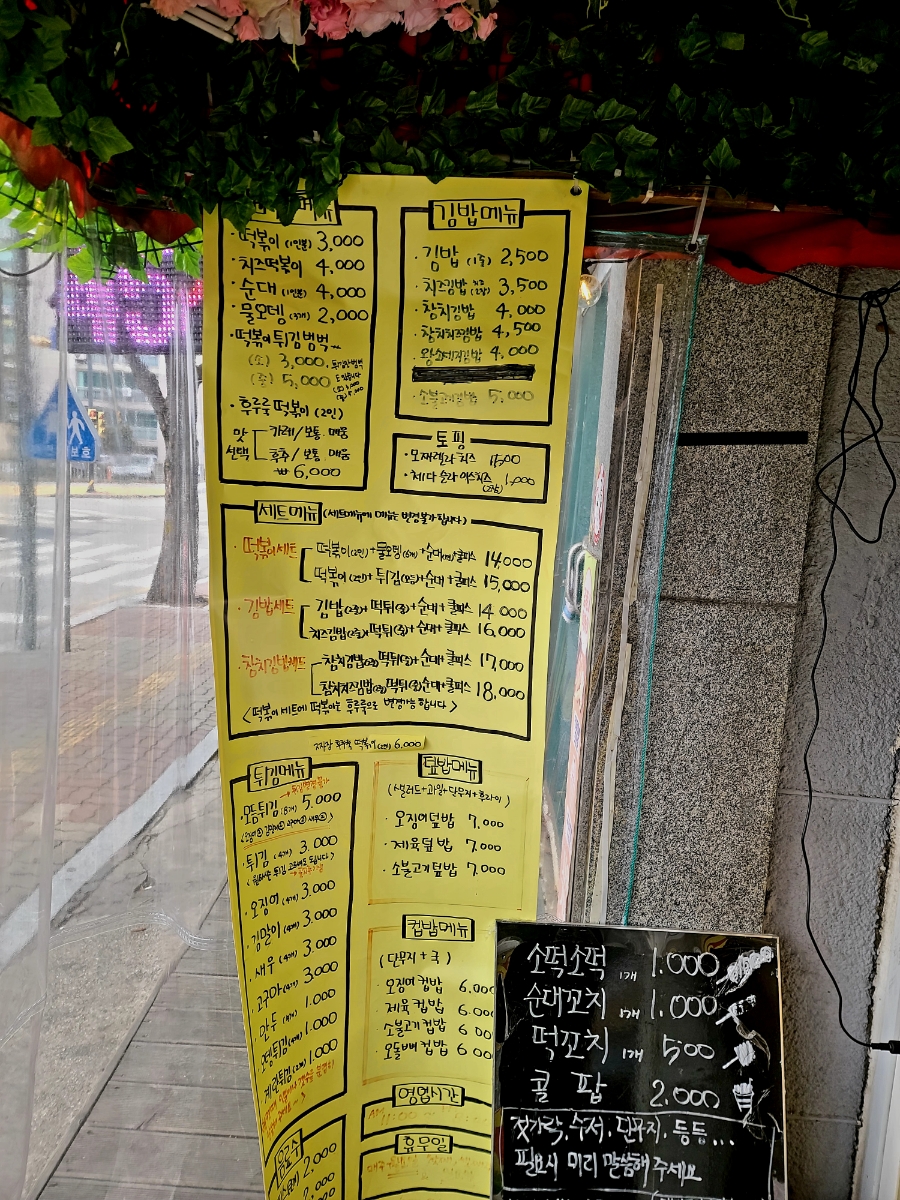 메뉴
· 떡볶이 (1인분) 3,000
· 치즈떡볶이 4,000
· 순대 (1인분) 4,000
· 물오뎅 (3개) 2,000
· 떡볶이 튀김범벅
(소) 3,000,
(중) 5,000
· 후루룩 떡볶이 (2인)
맛 선택
카레/보통. 매움
후추/보통. 매움
₩ 6,000
김밥메뉴
· 김밥 (1줄) 2,500
· 치즈김밥 3,500
· 참치김밥 4,000
· 참치치즈김밥 4,500
· 왕소세지김밥 4,000
· 소불고기김밥 5,000
토핑
· 모짜렐라 치즈
· 체다 슬라이스치즈 1,000
세트메뉴 (세트메뉴에 메뉴는 변경불가합니다)
· 떡볶이세트
떡볶이(2인)+물오뎅(6개)+순대+쿨피스 14,000
떡볶이(2인)+튀김(모듬)+순대+쿨피스 15,000
· 김밥세트
김밥(2줄)+떡튀(중)+순대+쿨피스 14,000
치즈김밥(2줄)+떡튀(중)+순대+쿨피스 16,000
· 참치김밥세트
참치김밥(2줄)떡튀(중)+순대+쿨피스 17,000
참치치즈김밥(2줄)떡튀(중)순대+쿨피스 18,000
< 떡볶이 세트에 떡볶이는 후루룩으로 변경가능합니다 >
떡볶이(2인) 6,000
튀김메뉴
모듬튀김 (8개) 5.000
· 튀김 (4개) 3.000
· 오징어 (4개) 3.000
· 김말이 (4개) 3.000
· 새우 (4개) 3.000
· 고구마 (4개) 3.000
· 만두 1.000
· 오뎅튀김 1.000
· 계란튀김 (2개) 1.000
음료수
2,000
덮밥메뉴
(샐러드+과일+단무지+후라이)
· 오징어덮밥 7,000
· 제육덮밥 7,000
· 소불고기덮밥 7,000
컵밥메뉴
(단무지+국)
· 오징어컵밥 6.000
· 제육컵밥 6.00
· 소불고기컵밥 6 00
· 오돌뼈컵밥 6 00
영업시간
휴무일
소떡소떡 1개 1.000
순대꼬치 1개 1.000
떡꼬치 1개 500
콜팝 2.000
젓가락, 수저, 단무지, 등등...
필요시 미리 말씀해 주세요
보호